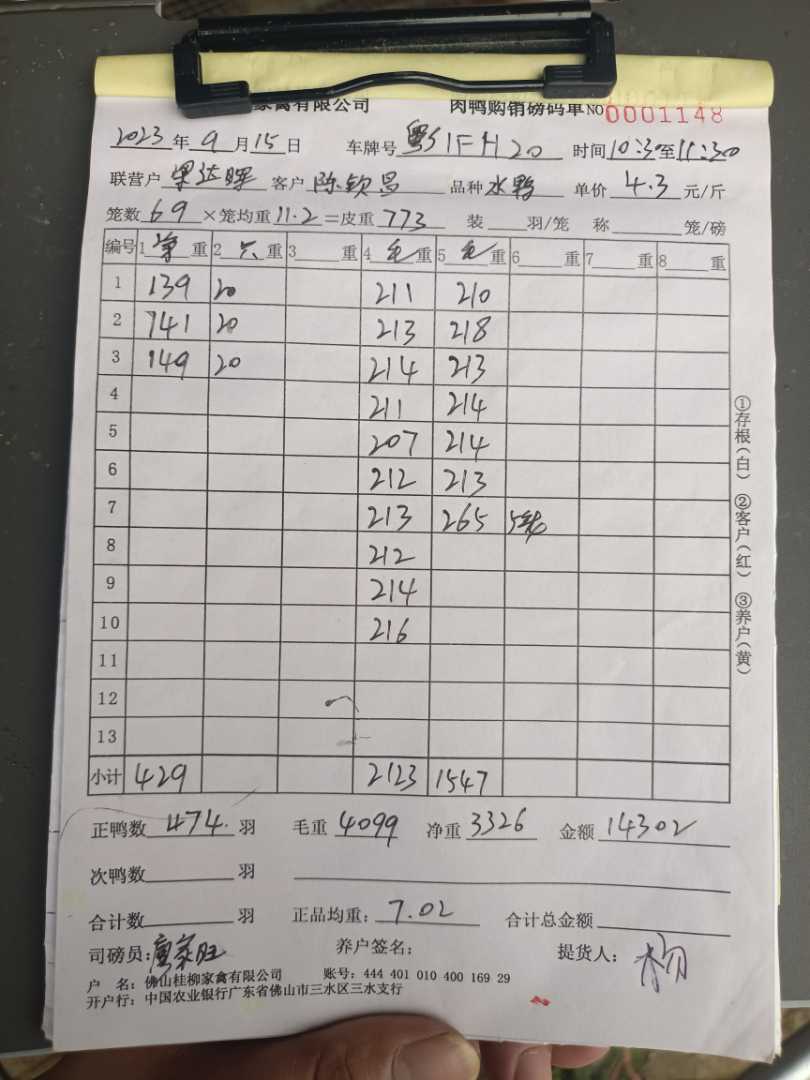 家禽有限公司 肉鸭购销磅码单 NO 0001148
2023 年 9 月 15 日 车牌号 时间 10:30 至 11:30
联营户 客户 陈钦昌 品种 水鸭 单价 4.3 元/斤
笼数 69 ×笼均重 11.2 =皮重 773 装 羽/笼 称 笼/磅
编号 1 重 2 重 3 重 4 毛 重 5 毛 重 6 重 7 重 8 重
1 139 20 211 210
2 141 20 213 218
3 149 20 214 213
4 211 214
5 207 214
6 212 213
7 213 265 5笼
8 212
9 214
10 216
11
12
13
小计 429 2123 1547
正鸭数 474. 羽 毛重 4099 净重 3326 金额 14302
次鸭数 羽
合计数 羽 正品均重: 7.02 合计总金额
司磅员: 养户签名: 提货人:
户 名: 佛山桂柳家禽有限公司 账号: 444 401 010 400 169 29
开户行: 中国农业银行广东省佛山市三水区三水支行
①存根(白) ②客户(红) ③养户(黄)